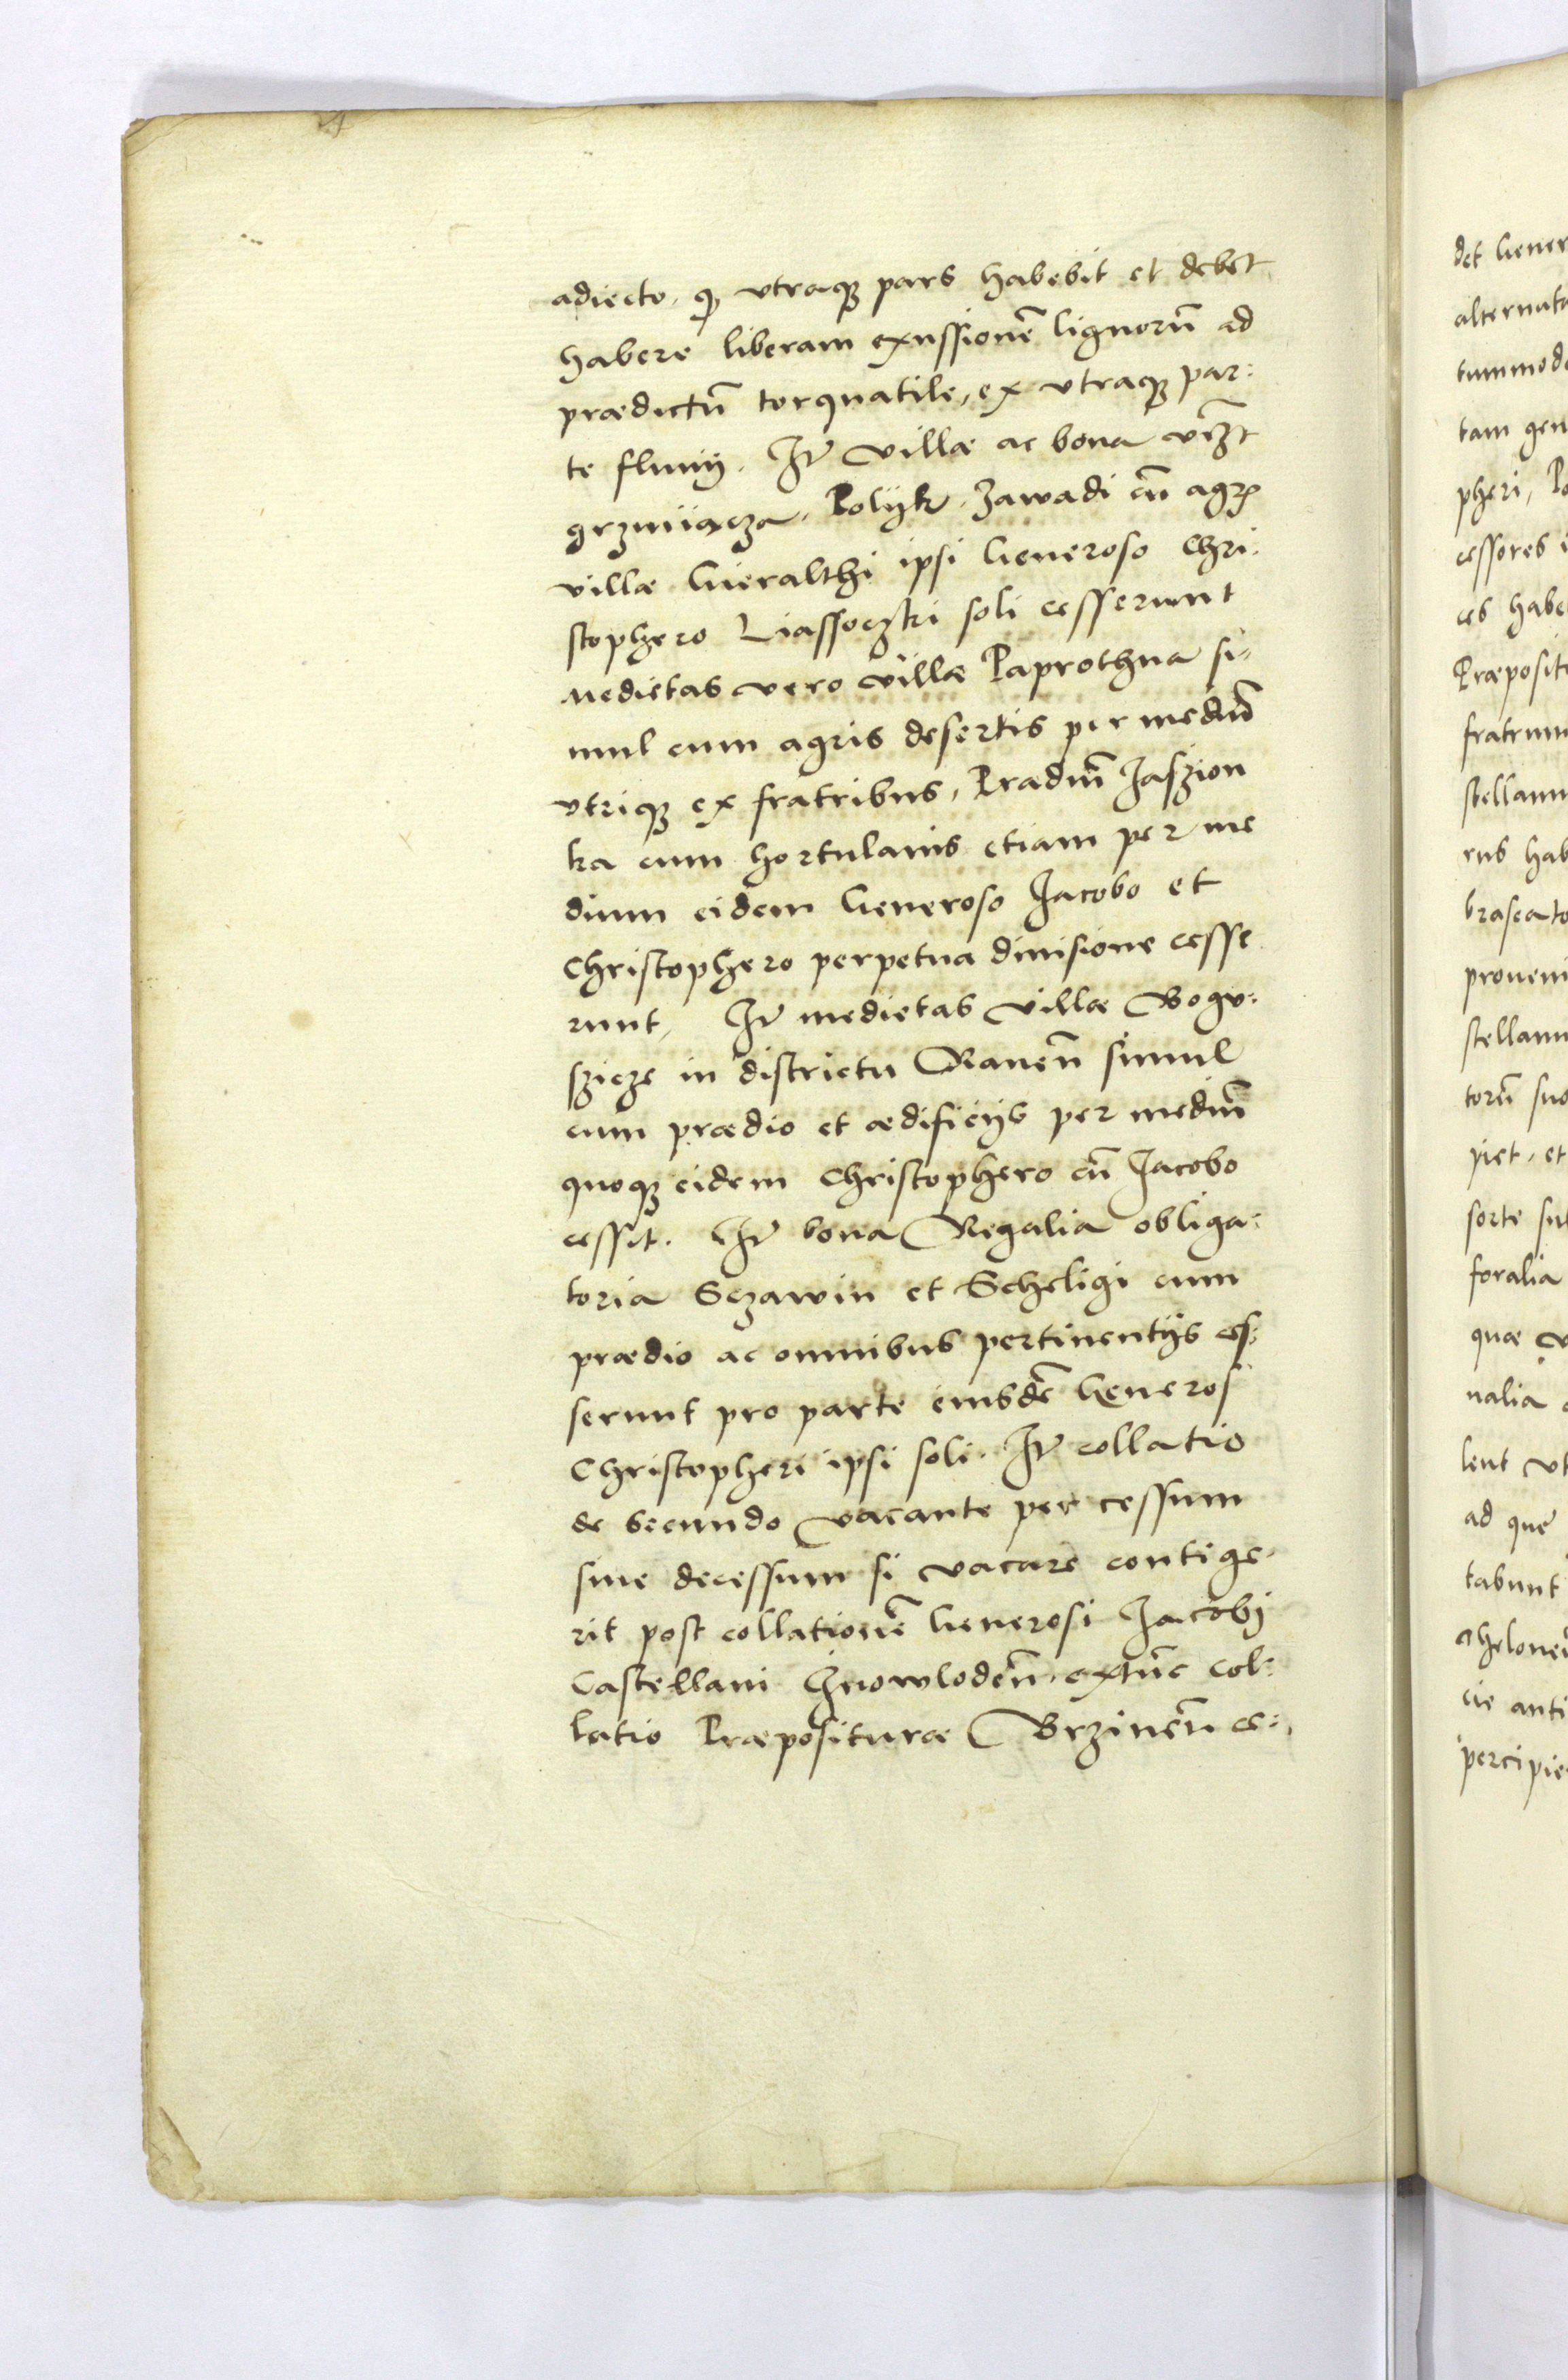 adiecto, qȝ vtraqȝ pars habebit et debet
habere liberam exussionē lignorū ad
prædictū torquatile, ex vtraqȝ par:
te fluuij. Itē villæ ac bona vczt
grzmiącza, Polijk, Zawadi cū agrꝭ
villæ Gieralthi ipsi Generoso Chri:
stophero Liassoczki soli cesserunt
Medietas vero villæ Paprothna si=
mul cum agris desertis per mediū
vtriqȝ ex fratribus, Prædiū Jaszion
ka cum hortulanis etiam per me
dium eidem Generoso Jacobo et
Christophero perpetua diuisione cesse
runt, Itē medietas villæ Bogu:
szicze in districtu Rauen̄ simul
cum prædio et ædificijs per mediū
quoqȝ eidem Christophero cū Jacobo
cessit. Itē bona Regalia obliga:
toria Sczawin et Scheligi cum
prædio ac omnibus pertinentijs ces:
serunt pro parte eiusdē Generosi
Christopheri ipsi soli. Itē collatio
de secundo vacante per cessum
siue decessum si vacare contige
rit post collationē Generosi Jacobi
Castellani Jnowloden̄, extūc col:
latio Præpositurae Brzinen̄ ce:
det Gener
alternata
tummodo
tam gen
pheri, Po
cessores
ces habe
Præposit
fratrum
stellanu
rus hab
braseato
proueni
stellanu
torū suo
piet, et
sorte su
foralia
quæ v
nalia
lent vt
ad quē
tabunt
cie anti
percipie